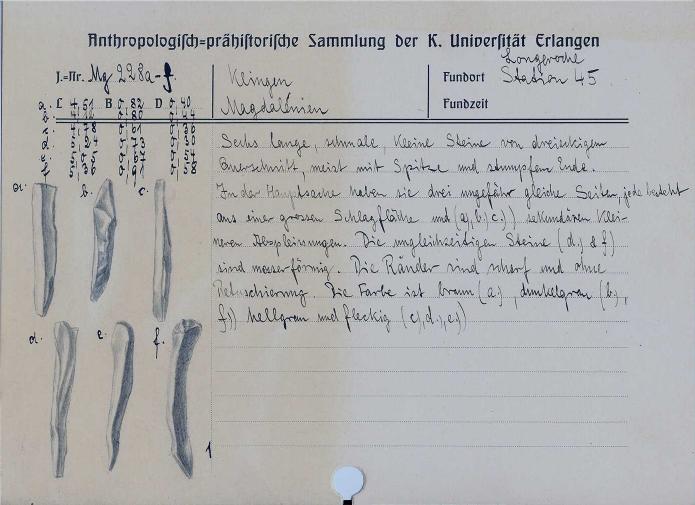 Anthropologisch=prähistorische Sammlung der K. Universität Erlangen
J.=Nr. Mg 228a-f.
Klingen
Magdalénien
Fundort Longeroche
Station 45
Fundzeit
L B D
Sechs lange, schmale, kleine Steine von dreieckigem
Querschnitt, meist mit Spitze und stumpfem Ende.
In der Hauptsache haben sie drei ungefähr gleiche Seiten, jede besteht
aus einer grossen Schlagfläche und (a), b.) c.)) sekundären Klei-
neren Absplissungen. Die ungleichseitigen Steine (d.) & f)
sind messerförmig. Die Ränder sind scharf und ohne
Retuschierung. Die Farbe ist braun (a.) , dunkelgrau (b.),
f.)) hellgrau und fleckig (c), d.), e.))
a. b. c.
d. e. f.
1